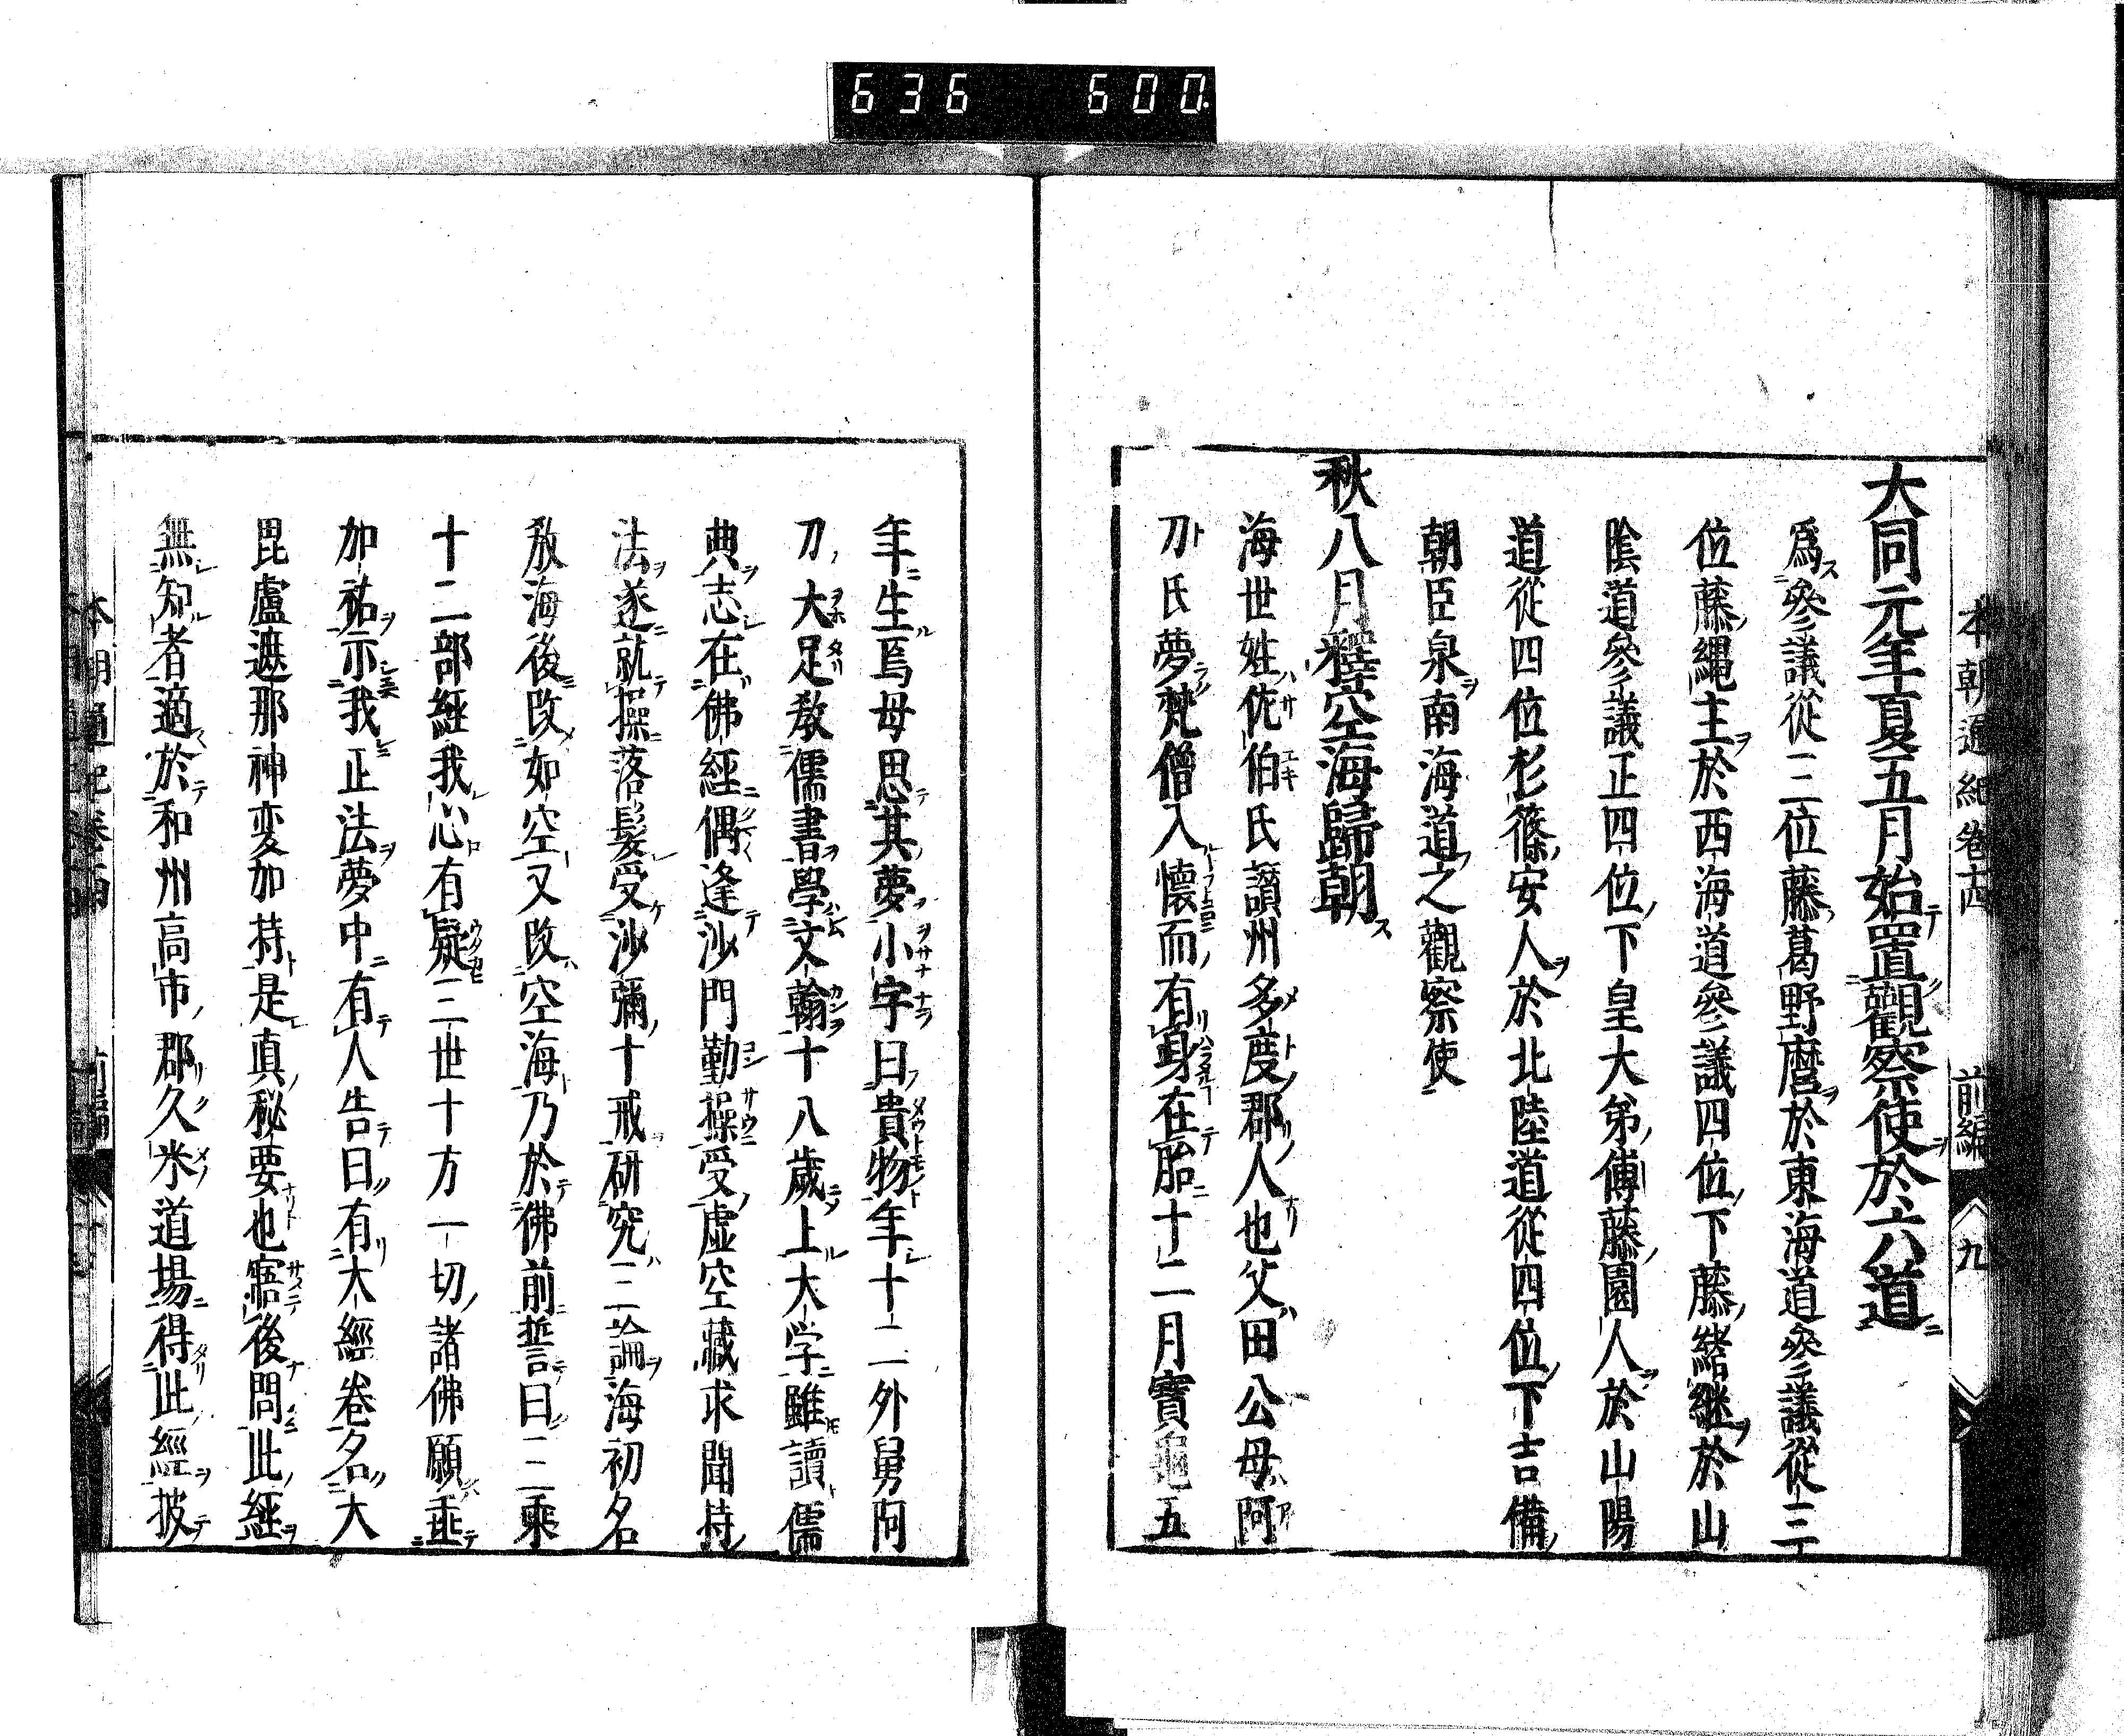 636 600.
本朝通紀卷十四 前編 九
大同元年夏五月始置觀察使於六道
爲參議從三位藤葛野麿於東海道參議從三
位藤縄主於西海道參議四位下藤緒継於山
陰道參議正四位下皇大弟傅藤園人於山陽
道從四位杉篠安人於北陸道從四位下吉備
朝臣泉南海道之觀察使
秋八月釋空海歸朝
海世姓佐伯氏讃州多度郡人也父田公母阿
刀氏夢梵僧入懷而有身在胎十二月寶龜五
年生焉母思其夢小字曰貴物年十二外舅阿
刀大足敎儒書學文翰十八歲上大学雖讀儒
典志在佛經偶逢沙門勤操受虛空藏求聞持
法遂就操落髮受沙彌十戒研究三論海初名
敎海後改如空又改空海乃於佛前誓曰三乘
十二部經我心有疑三世十方一切諸佛願垂
加祐示我正法夢中有人告曰有大經卷名大
毘盧遮那神変加持是真秘要也寤後問此經
無知者適於和州高市郡久米道場得此經披